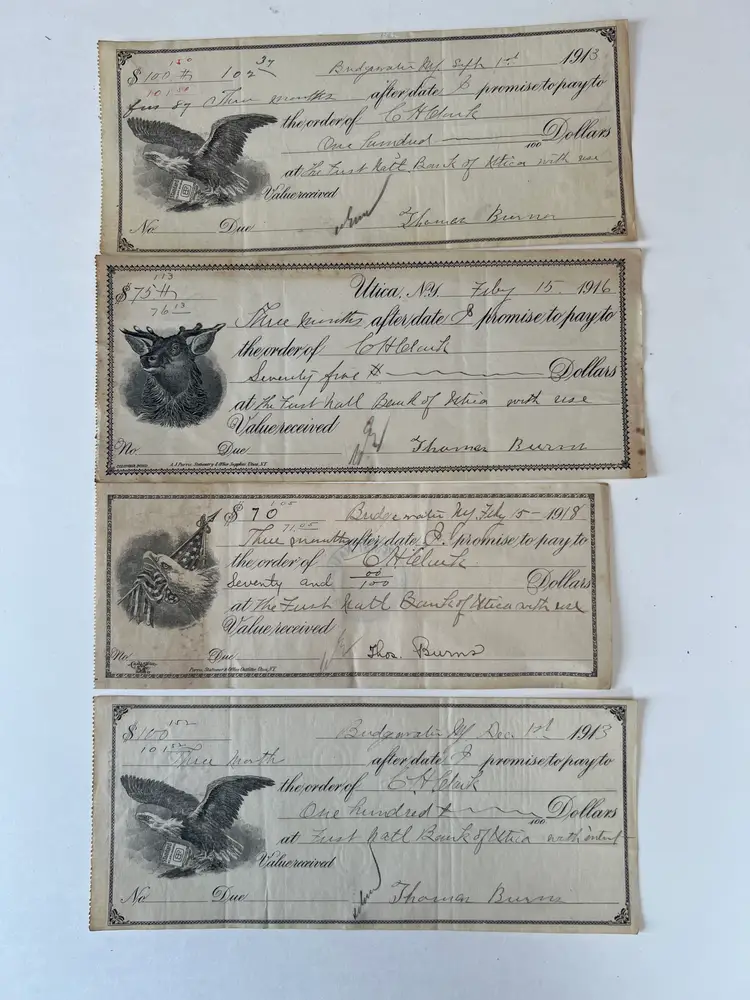 150
$ 100 102 37
Bridgewater NY Sept 1st 1913
101.50
87 Three months after date I promise to pay to
the order of C H Clark
One hundred 100 Dollars
at The First Nat'l Bank of Utica with use
Value received
No. Due Thomas Burns
113
$ 75 Utica, N.Y. Feby 15 1916
76 13
Three months after date I promise to pay to
the order of C H Clark
Seventy five Dollars
at The First Natl Bank of Utica with use
Value received
No. Due Thomas Burns
1.05
$ 70 Bridgewater NY. Feb 15 - 1918
71.05
Three months after date I promise to pay to
the order of C H Clark
Seventy and 00/100 Dollars
at The First Natl Bank of Utica with use
Value received
No. Due Thos. Burns
152
$ 100 Bridgewater NY Dec 1st 1913
101 52
Three Month after date I promise to pay to
the order of C H Clark
One hundred 100 Dollars
at First Natl Bank of Utica with
Value received
No Due Thomas Burns